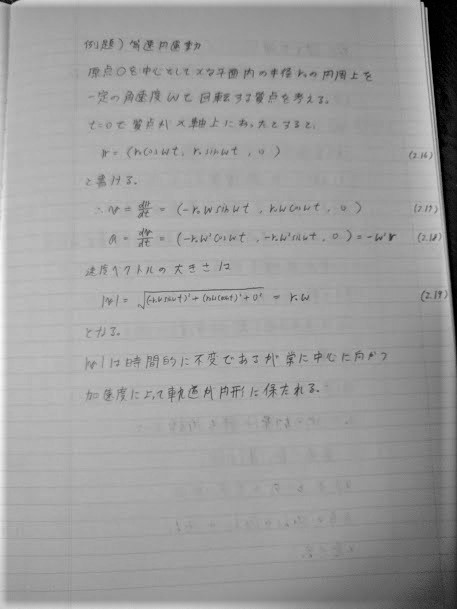 例題) 等速円運動
原点Oを中心としてxy平面内の半径r₀の円周上を
一定の角速度ωで回転する質点を考える。
t=0で質点がx軸上にあったとすると、
r = (r₀cosωt, r₀sinωt, 0) (2.16)
と書ける。
∴ v = dr/dt = (-r₀ωsinωt, r₀ωcosωt, 0) (2.17)
a = dv/dt = (-r₀ω²cosωt, -r₀ω²sinωt, 0) = -ω²r (2.18)
速度ベクトルの大きさは
|v| = √((-r₀ωsinωt)² + (r₀ωcosωt)² + 0²) = r₀ω (2.19)
となる。
|v|は時間的に不変であるが常に中心に向かう
加速度によって軌道が円形に保たれる。